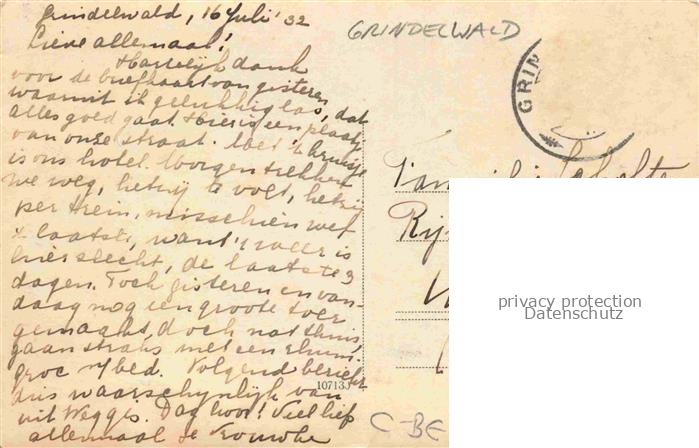 Grindelwald, 16 Juli '32
GRINDELWALD
Lieve allemaal!
Hartelijk dank
voor de briefkaart van gisteren
waaruit ik gelukkig las, dat
alles goed gaat. Hier is een plaatje
van onze straat. Met 'n kruisje
is ons hotel. Morgen trekken
we weg, hetzij te voet, hetzij
per trein, misschien wel
't laatste, want 't weer is
hier slecht, de laatste 3
dagen. Toch gisteren en van-
daag nog een groote toer
gemaakt, doch nat thuis,
gaan straks met een rhum
groc n/ bed. Volgend bericht
dus waarschynlyk van
uit Weggis. Dag hoor! Veel liefs
allemaal je
GRIN
Rij
10713
C-BE
privacy protection
Datenschutz